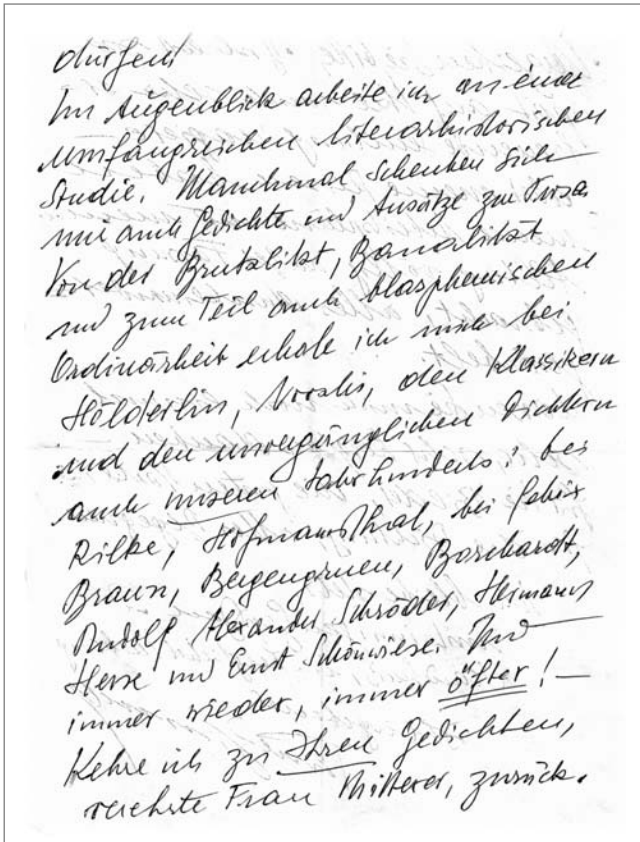 dürfen!
Im Augenblick arbeite ich an einer
umfangreichen literarhistorischen
Studie. Manchmal schenken sich
mir auch Gedichte und Ansätze zur Prosa
Von der Brutalität, Banalität
und zum Teil auch blasphemischen
Ordinärheit erhole ich mich bei
Hölderlin, Novalis, den Klassikern
und den unvergänglichen Dichtern
auch unseres Jahrhunderts: bei
Rilke, Hofmannsthal, bei Felix
Braun, Bergengruen, Borchardt,
Rudolf Alexander Schröder, Hermann
Hesse und Ernst Schönwiese. Und
immer wieder, immer öfter! –
Kehre ich zu Ihren Gedichten,
verehrte Frau Mitterer, zurück.